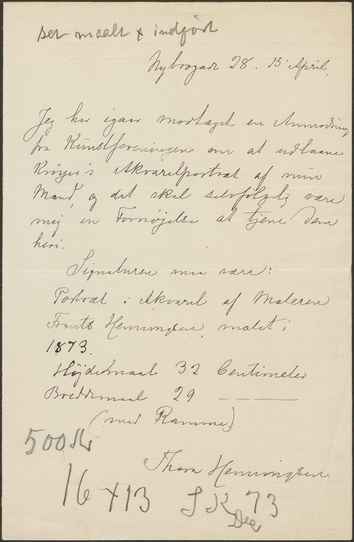 set maalt & indført
Nybrogade 28. 15 April.
Jeg har igaar modtaget en Anmodning
fra Kunstforeningen om at udlaane
Krøyer's Akvarelportræt af min
Mand, og det skal selvfølgelig være
mig en Fornøjelse at tjene Dem
heri.
Signaturen maa være:
Portræt i Akvarel af Maleren
Frants Henningsen, malet i
1873.
Højdemaal 32 Centimeter
Breddemaal 29 — — —
(med Ramme)
500 Kr
Thora Henningsen
16 x 13 SK 73
Dec